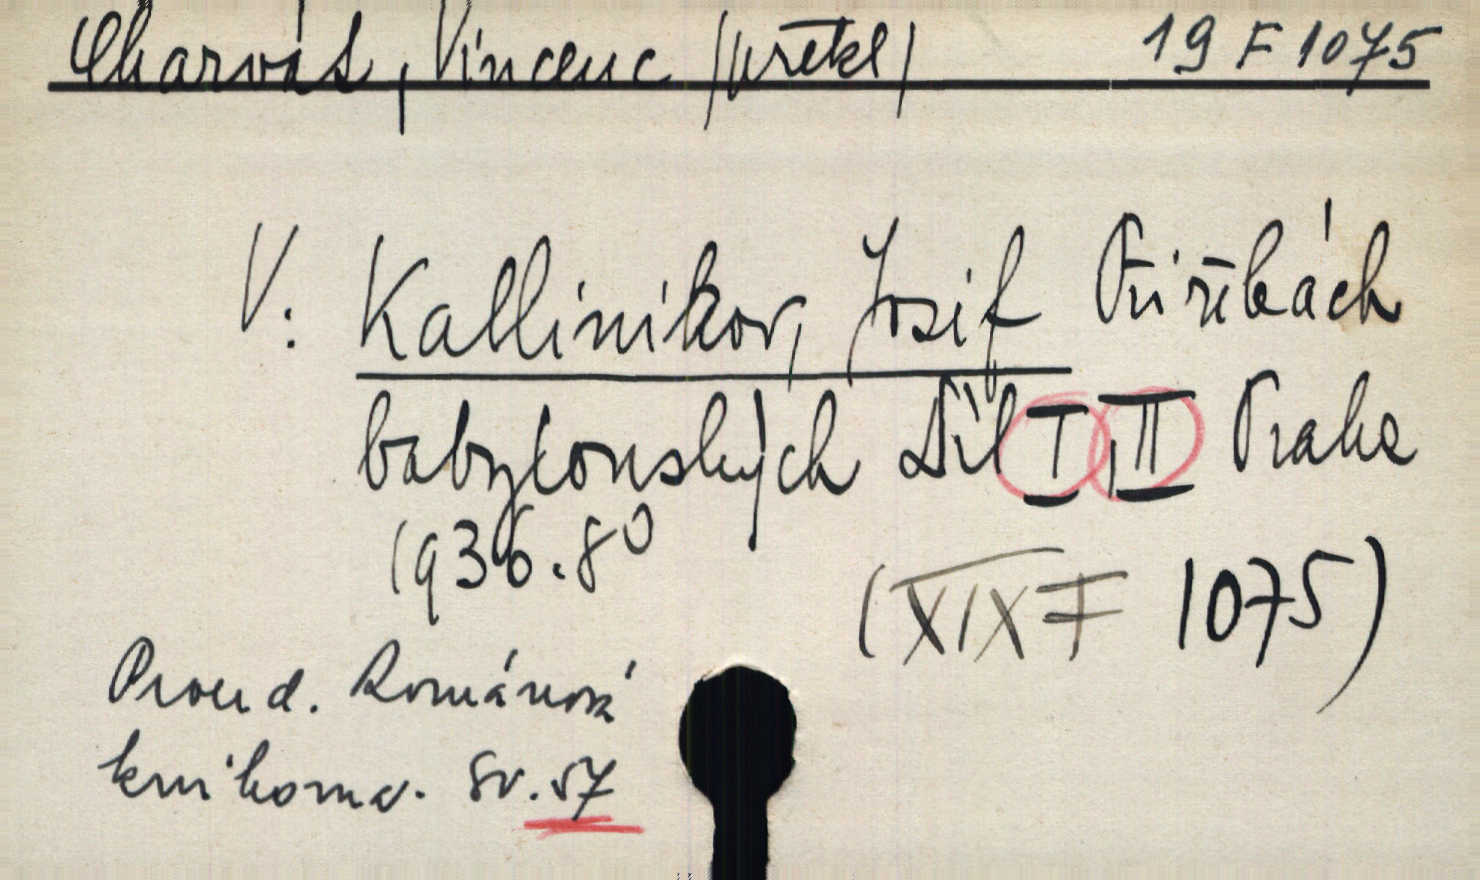 Charvát, Vincenc /přeřkl/ 19 F 1075
V: Kallinikov, Josif Při řekách
babylonských Díl I, II Praha
1936. 8°
(XIX F 1075)
Proud. Románová
knihovna. Sv. 57